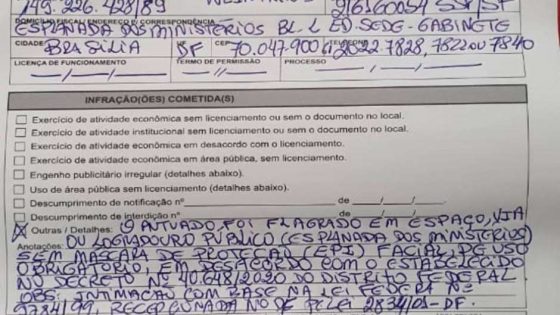 749.226.428/89
91616005-4 SSP/SP
DOMICÍLIO FISCAL/ENDEREÇO P/ CORRESPONDÊNCIA
ESPLANADA DOS MINISTÉRIOS BL. L ED SEDE-GABINETE
CIDADE BRASÍLIA DF CEP 70.047-900 61 2022.7828, 7822 OU 7840
LICENÇA DE FUNCIONAMENTO TERMO DE PERMISSÃO PROCESSO
INFRAÇÃO(ÕES) COMETIDA(S)
Exercício de atividade econômica sem licenciamento ou sem o documento no local.
Exercício de atividade institucional sem licenciamento ou sem o documento no local.
Exercício de atividade econômica em desacordo com o licenciamento.
Exercício de atividade econômica em área pública, sem licenciamento.
Engenho publicitário irregular (detalhes abaixo).
Uso de área pública sem licenciamento (detalhes abaixo).
Descumprimento de notificação nº de / /
Descumprimento de interdição nº de / /
X Outras / Detalhes: O AUTUADO FOI FLAGRADO EM ESPAÇO, VIA
Anotações: OU LOGRADOURO PÚBLICO (ESPLANADA DOS MINISTÉRIOS)
SEM MÁSCARA DE PROTEÇÃO (EPI) FACIAL, DE USO
OBRIGATÓRIO, EM DESACORDO COM O ESTABELECIDO
NO DECRETO Nº 40.648/2020 DO DISTRITO FEDERAL
OBS: INTIMAÇÃO COM BASE NA LEI FEDERAL Nº
9784/99, RECEPCIONADA NO DF P/ LEI 2834/01-DF.